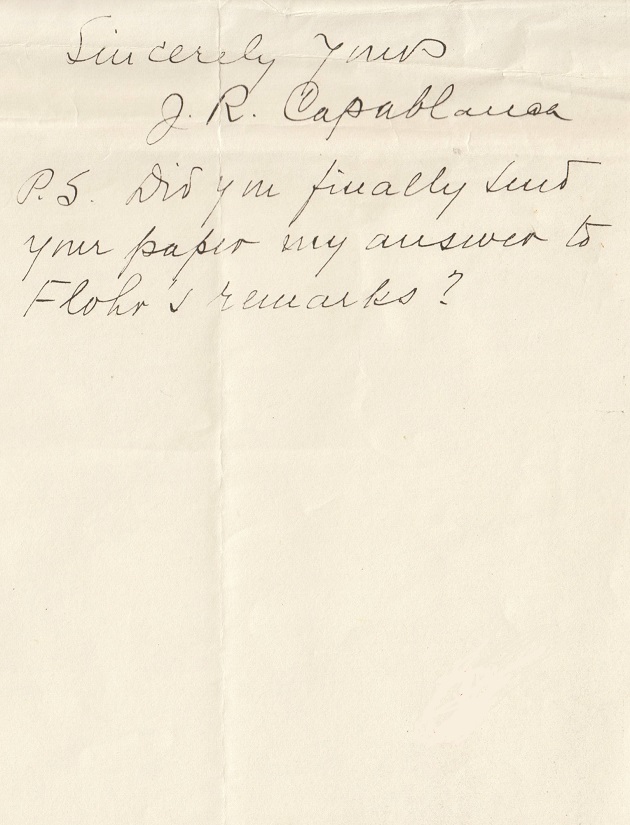 Sincerely yours
J. R. Capablanca
P.S. Did you finally send
your paper my answer to
Flohr's remarks?